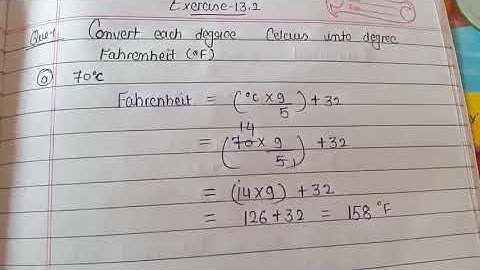 Exercise-13.2
Ques-1 Convert each degree Celcius into degree
Fahrenheit (°F)
(a) 70°C
Fahrenheit = (°C × 9/5) + 32
14
= (70 × 9/5) + 32
= (14×9) + 32
= 126 + 32 = 158 °F